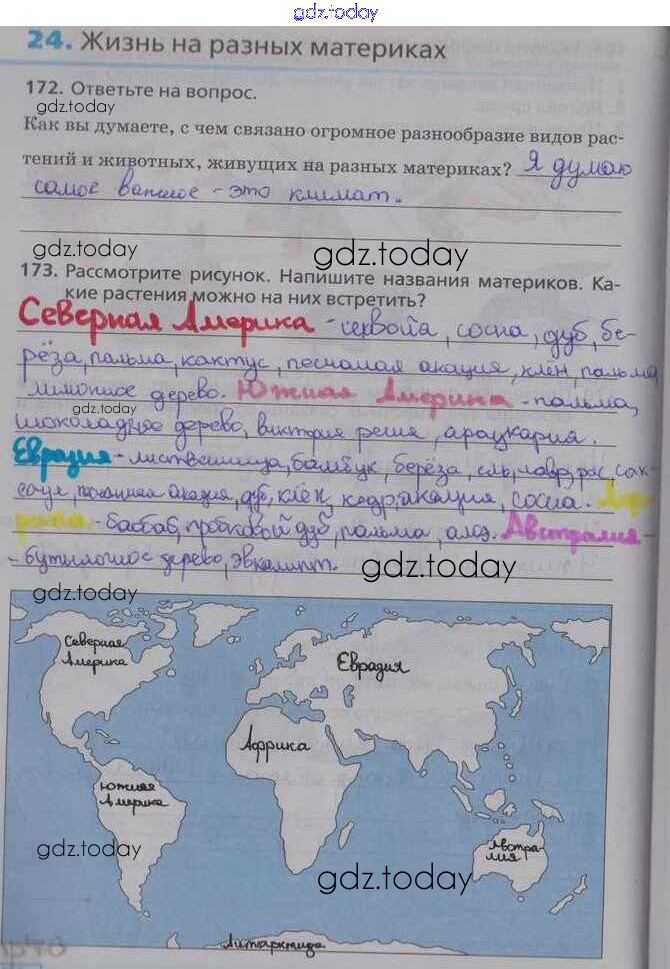 gdz.today
24. Жизнь на разных материках
172. Ответьте на вопрос.
gdz.today
Как вы думаете, с чем связано огромное разнообразие видов рас-
тений и животных, живущих на разных материках? Я думаю
самое важное - это климат.
gdz.today
gdz.today
173. Рассмотрите рисунок. Напишите названия материков. Ка-
кие растения можно на них встретить?
Северная Америка - секвойа, сосна, дуб, бе-
рёза, пальма, кактус, песчаная акация, клён, пальма
лимонное дерево. Южная Америка - пальма,
gdz.today
шоколадное дерево, виктория регия, араукария.
Евразия - лиственница, бамбук, берёза, ель, лавр, рис, сак-
саул, песчаная акация, дуб, клён, кедр, акация, сосна. Аф-
рика - баобаб, пробковый дуб, пальма, алоэ. Австралия -
- бутылочное дерево, эвкалипт.
gdz.today
gdz.today
Северная
Америка
Евразия
Африка
Южная
Америка
Австра-
лия
gdz.today
gdz.today
Антарктида